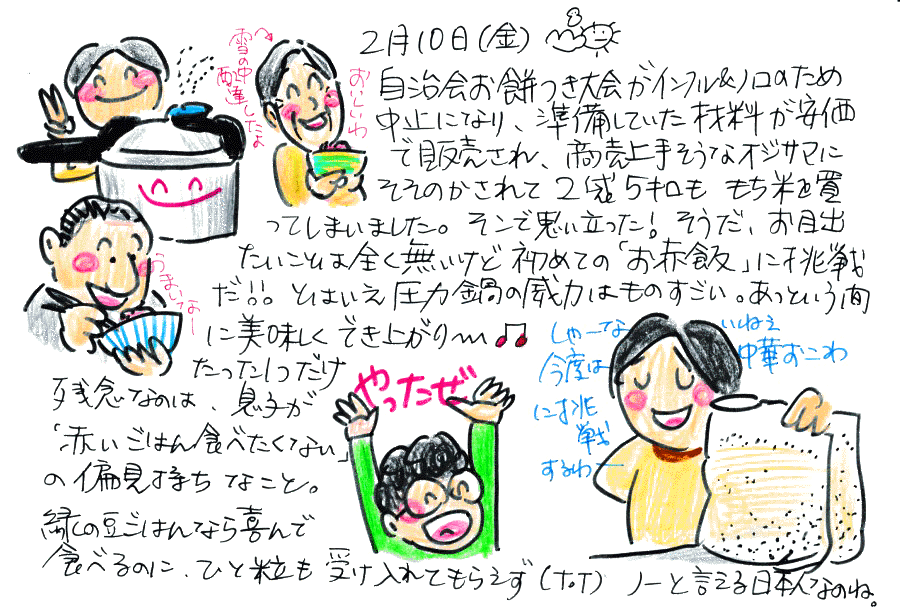 2月10日(金)
自治会お餅つき大会がインフル&ノロのため
中止になり、準備していた材料が安価
で販売され、商売上手そうなオジサマに
そそのかされて2袋5キロも もち米を買
ってしまいました。そこで思い立った！そうだ、お目出
たいことは全く無いけど初めての「お赤飯」に挑戦
だ!!。とはいえ圧力鍋の威力はものすごい。あっという間
に美味しくでき上がり〜
たった1つだけ
残念なのは、息子が
「赤いごはん食べたくない」
の偏見持ちなこと。
緑の豆ごはんなら喜んで
食べるのに、ひと粒も受け入れてもらえず(ToT) ノーと言える日本人なのね。
雪の中
配達したよ
おいしいわ
うまいなー
やったぜ
しゃーな
いねぇ
今度は
中華おこわ
に挑
戦
するわー